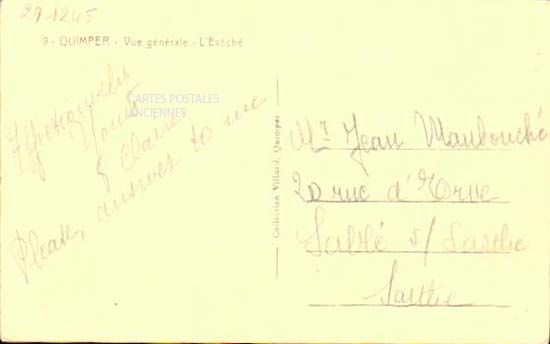 29-12-45
9 - QUIMPER - Vue générale - L'Evêché
CARTES POSTALES
ANCIENNES
Affectionately
Yours
Claire
Please, answer to me
Collection Villard, Quimper
Mr Jean Maubouché
20 rue d'Erve
Sablé s/ Sarthe
Sarthe